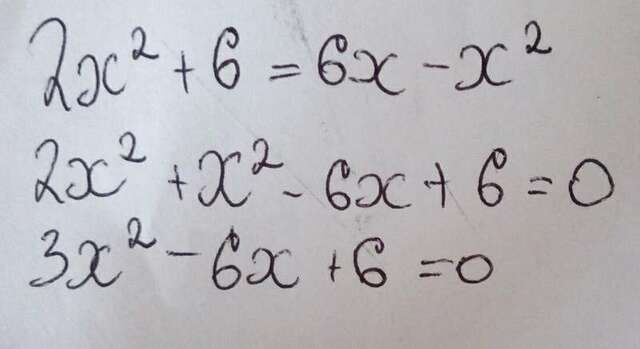 2x² + 6 = 6x - x²
2x² + x² - 6x + 6 = 0
3x² - 6x + 6 = 0